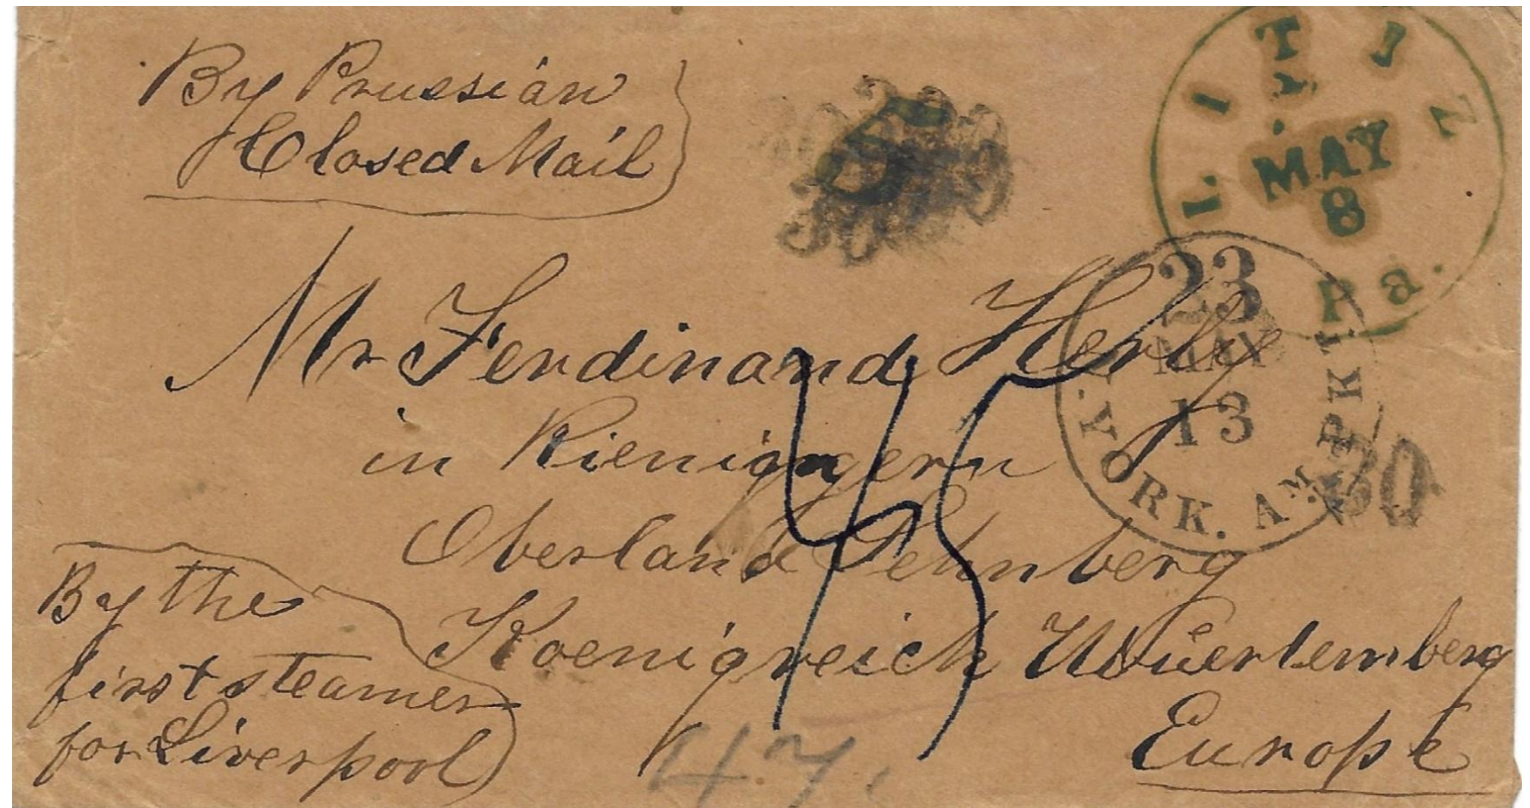 By Prussian
Closed Mail
5
LITIZ
MAY
8
Pa.
23
MAY
13
N. YORK. AM. PKT.
30
Mr Ferdinand
in Rieningern
Oberland
Koenigreich Wuertemberg
Europe
45
By the
first steamer
for Liverpool
47.